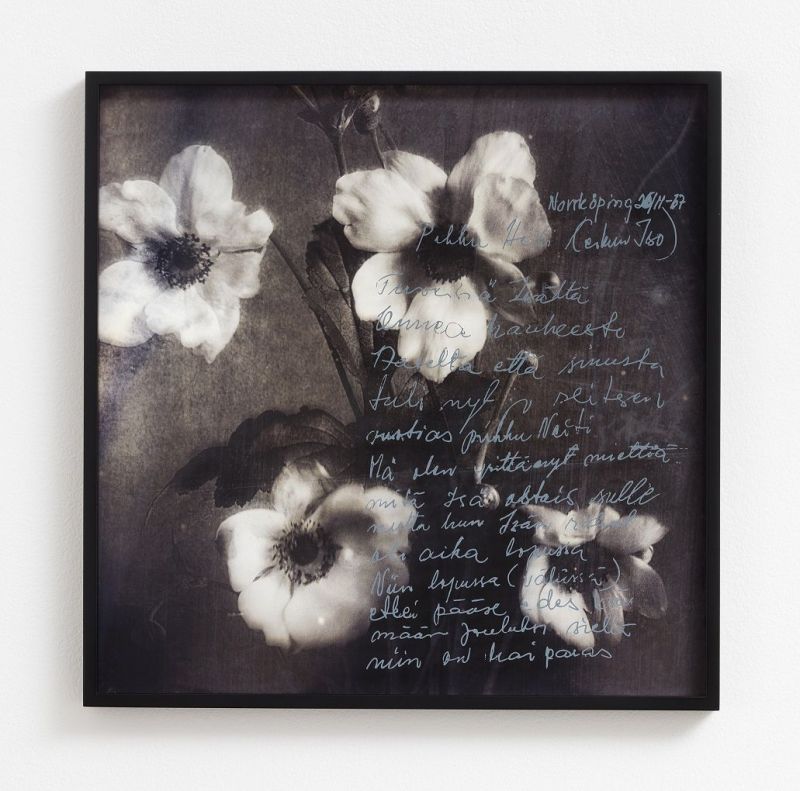 Norrköping 26/11-67
Pikku
Terveisiä Isältä
Onnea kauheesti
että sinusta
tuli nyt jo seitsen
vuotias pikku Neiti
Mä olen yrittänyt miettiä
mitä Isä ostais sulle
mutta kun Isän
on aika lopussa
Niin lopussa (vähissä)
ettei pääse edes
mään Jouluksi sieltä
niin on kai paras